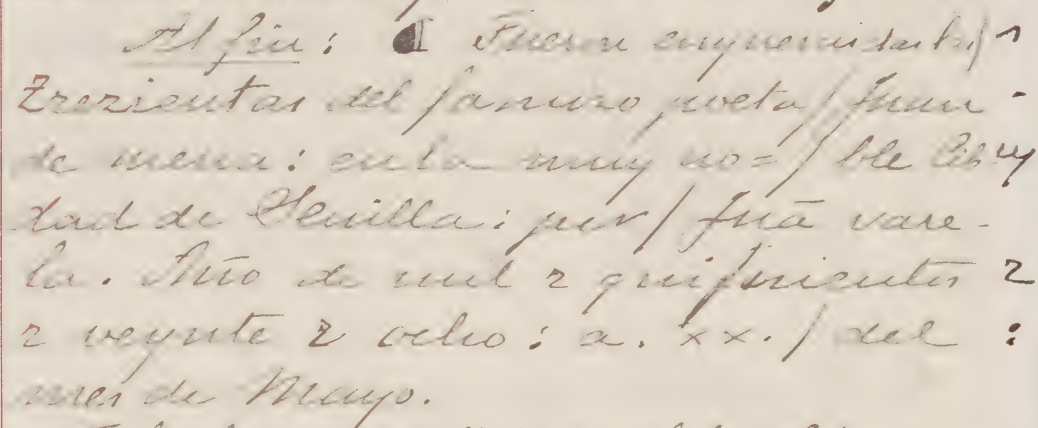 Al fin: ¶ Fueron empremidas las/
Trezientas del famoso poeta / Juan
de mena: en la muy no= / ble Cib
dad de Seuilla: por / Juā vare-
la. Año de mil z quiſnientos z
z veynte z ocho: a. xx. / del :
mes de Mayo.